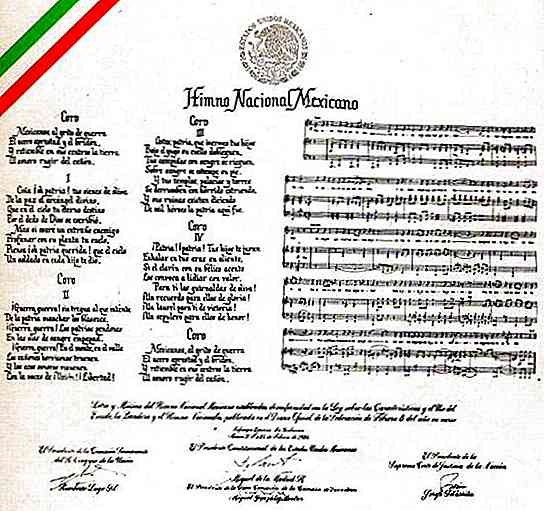 ESTADOS UNIDOS MEXICANOS
Himno Nacional Mexicano
Coro
Mexicanos al grito de guerra
El acero aprestad y el bridón,
Y retiemble en sus centros la tierra
Al sonoro rugir del cañón.
I
Ciña ¡oh patria! tus sienes de oliva
De la paz el arcángel divino,
Que en el cielo tu eterno destino
Por el dedo de Dios se escribió.
Mas si osare un extraño enemigo
Profanar con su planta tu suelo,
Piensa ¡oh patria querida! que el cielo
Un soldado en cada hijo te dio.
Coro
II
¡Guerra, guerra! sin tregua al que intente
De la patria manchar los blasones.
¡Guerra, guerra! Los patrios pendones
En las olas de sangre empapad.
¡Guerra, guerra! En el monte, en el valle
Los cañones horrísonos truenen
Y los ecos sonoros resuenen
Con las voces de ¡Unión! ¡Libertad!
Coro
III
Antes, patria, que inermes tus hijos
Bajo el yugo su cuello dobleguen,
Tus campiñas con sangre se rieguen,
Sobre sangre se estampe su pie.
Y tus templos, palacios y torres
Se derrumben con hórrido estruendo,
Y sus ruinas existan diciendo
De mil héroes la patria aquí fue.
Coro
IV
¡Patria! ¡patria! Tus hijos te juran
Exhalar en tus aras su aliento,
Si el clarín con su bélico acento
Los convoca a lidiar con valor.
¡Para ti las guirnaldas de oliva!
¡Un recuerdo para ellos de gloria!
¡Un laurel para ti de victoria!
¡Un sepulcro para ellos de honor!
Coro
Mexicanos, al grito de guerra
El acero aprestad y el bridón,
Y retiemble en sus centros la tierra
Al sonoro rugir del cañón.
Letra y Música del Himno Nacional Mexicano establecidas de conformidad con la Ley sobre las Características y el Uso del
Escudo, la Bandera y el Himno Nacionales, publicada en el Diario Oficial de la Federación de febrero 8 del año en curso
El Presidente de la Comisión Permanente
del H. Congreso de la Unión
El Presidente Constitucional de los Estados Unidos Mexicanos
Miguel de la Madrid H.
El Presidente de la Gran Comisión de la Cámara de
Miguel González
El Presidente de la
Suprema Corte de Justicia de la Nación
Jorge